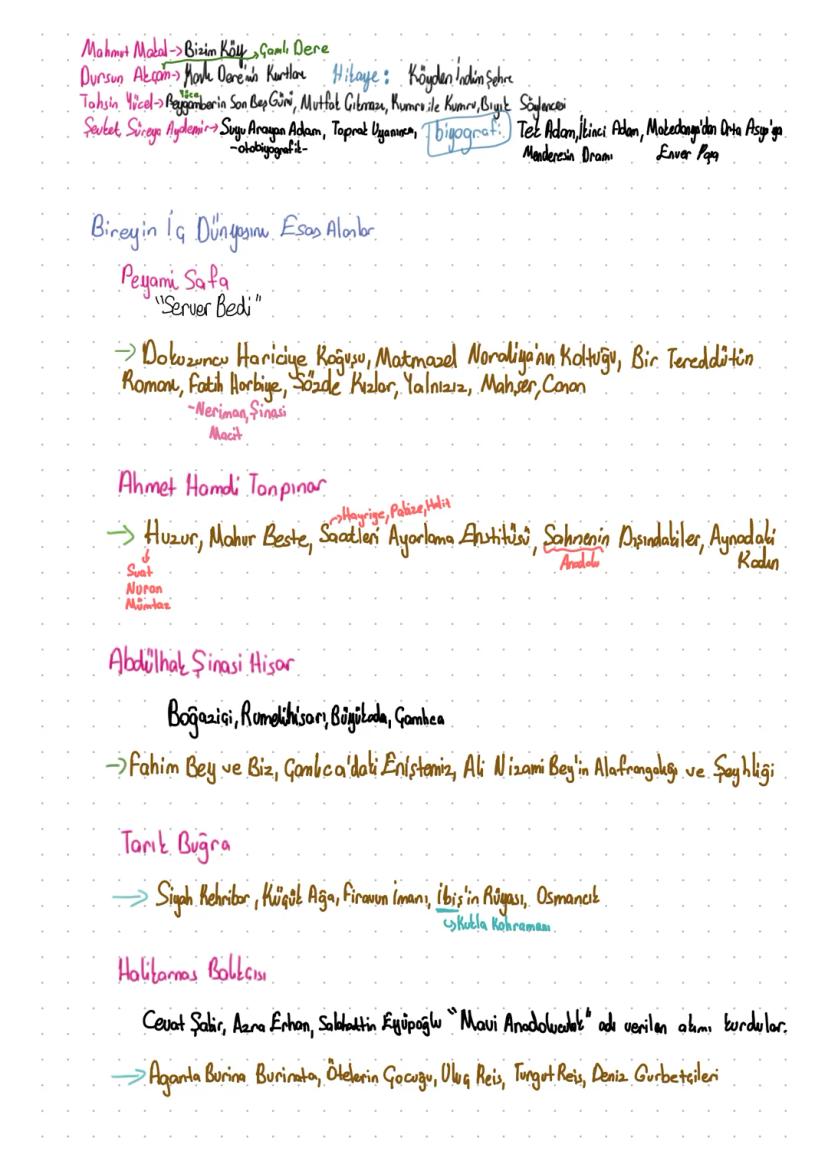 Mahmut Makal → Bizim Köy, Çamlı Dere
Dursun Akçam → Maral Dere'nin Kurtları Hikaye: Köyden İndim Şehre
Yüce
Tahsin Yücel → Peygamberin Son Beş Günü, Mutfak Çıkmazı, Kumru ile Kumru, Bıyık Söylencesi
Şevket Süreya Aydemir → Suyu Arayan Adam, Toprak Uyanırsa, biyografi: Tek Adam, İkinci Adam, Makedonya'dan Orta Asya'ya
-otobiyografik- Menderesin Dramı Enver Paşa
Bireyin İç Dünyasını Esas Alanlar
Peyami Safa
"Server Bedi"
→ Dokuzuncu Hariciye Koğuşu, Matmazel Noraliya'nın Koltuğu, Bir Tereddütün
Romanı, Fatih Harbiye, Sözde Kızlar, Yalnızız, Mahşer, Canan
-Neriman, Şinasi
Macit
Ahmet Hamdi Tanpınar
→ Hayriye, Pakize, Halit
→ Huzur, Mahur Beste, Saatleri Ayarlama Enstitüsü, Sahnenin Dışındakiler, Aynadaki
Kadın
Anadolu
Suat
Nuran
Mümtaz
Abdülhak Şinasi Hisar
Boğaziçi, Rumelihisarı, Büyükada, Çamlıca
→ Fahim Bey ve Biz, Çamlıca'daki Eniştemiz, Ali Nizami Bey'in Alafrangalığı ve Şeyhliği
Tarık Buğra
→ Siyah Kehribar, Küçük Ağa, Firavun İmanı, İbiş'in Rüyası, Osmancık
↳ Kukla Kahramanı
Halikarnas Balıkçısı
Cevat Şakir, Azra Erhan, Sabahattin Eyüpoğlu "Mavi Anadoluculuk" adı verilen akımı kurdular.
→ Aganta Burina Burinata, Ötelerin Çocuğu, Uluç Reis, Turgut Reis, Deniz Gurbetçileri